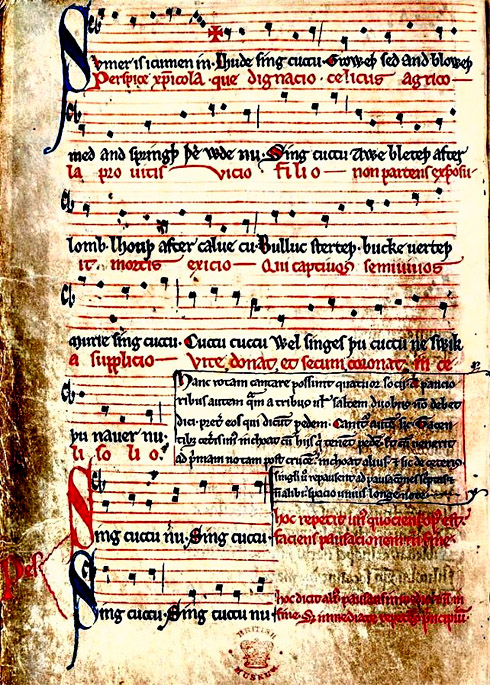 Svmer is icumen in· Lhude sing cuccu· Groweþ sed and bloweþ
Perspice xp̄icola· que dignacio· celicus agrico
med and springþ þe wde nu· Sing cuccu Awe bleteþ after
la pro uitis vicio filio non parcens exposu
lomb· lhouþ after calue cu· Bulluc sterteþ· bucke uerteþ
it mortis exicio Qui captiuos semiuiuos
murie sing cuccu· Cuccu cuccu Wel singes þu cuccu ne swik
a supplicio Vite donat et secum coronat in ce
þu nauer nu·
li so li o·
Hanc rotam cantare possunt quatuor socii· A paucio
ribus autem quam a tribus uel saltem duobus non debet
dici· preter eos qui dicunt pedem· Canitur autem sic· Tacen
tibus ceteris unus inchoat cum hiis qui tenent pedem· et cum uenerit
ad primam notam post crucem· inchoat alius· et sic de ceteris·
singuli uero repausent ad pausaciones scriptas
non alibi· spacio unius longe note·
Sing cuccu nu· Sing cuccu·
hoc repetit unus quociens opus est·
faciens pausacionem in fine·
Pes
Sing cuccu· Sing cuccu nu
hoc dicit alius pausans in medio et non in
fine· Set immediate repetens principium·
BRITISH
MUSEUM